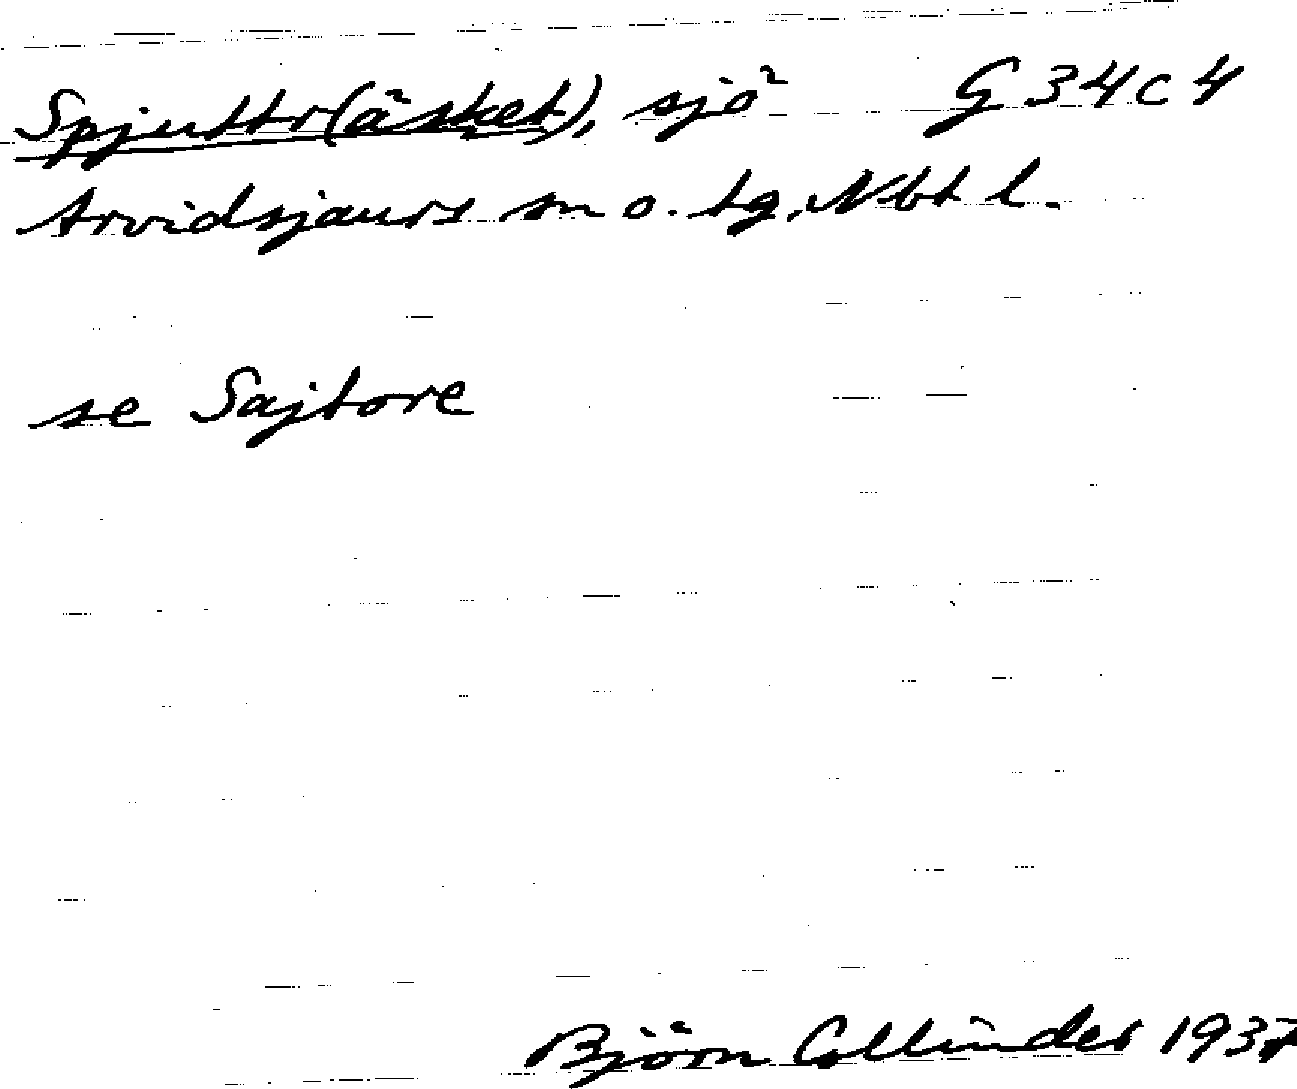 Spjuttr(äsket), sjö G 34 C 4
Arvidsjaurs sn o. tg, Nbt l.
se Sajtore
Björn Collinder 1937